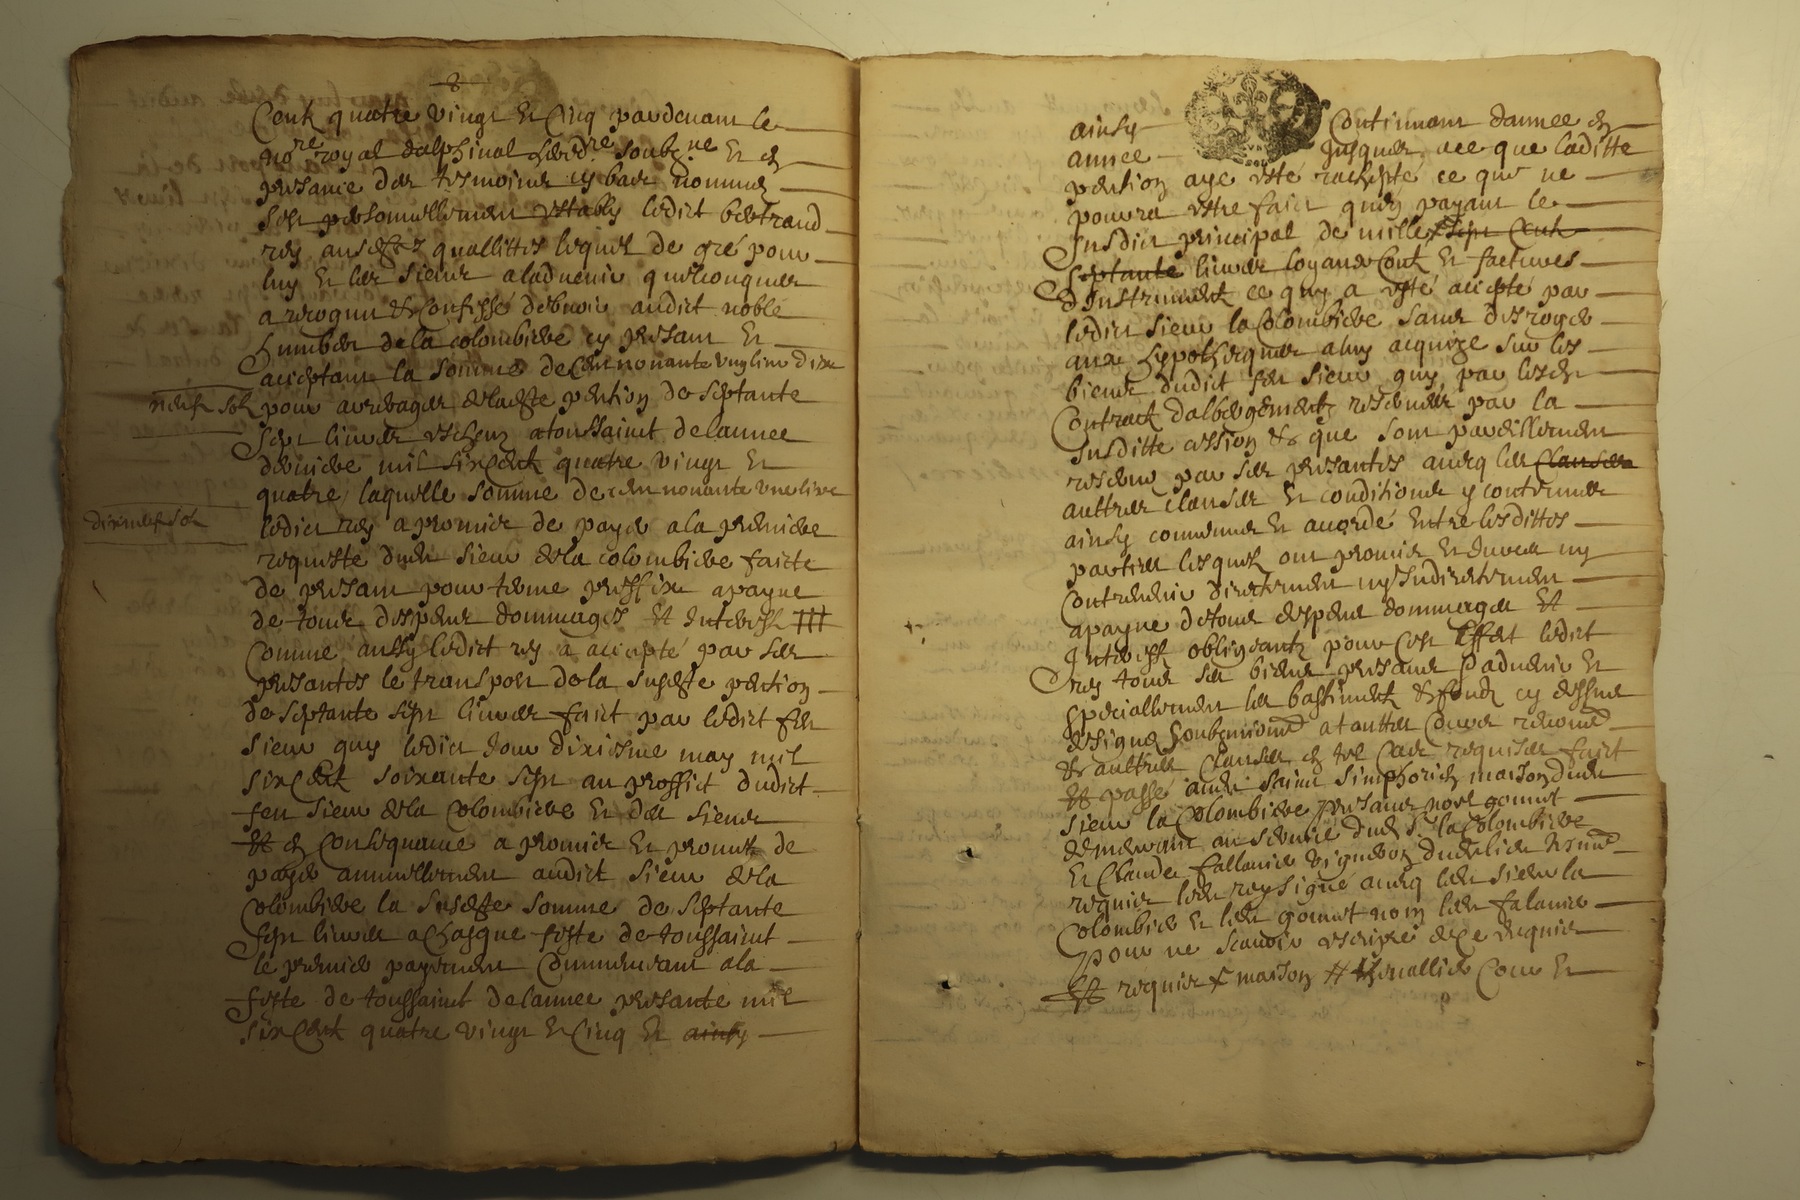 8
Cent quatre vingt et cinq pardevant le
no.re royal dalphinal hered.re soubz.ne et en
presance des tesmoins cy bas nommes
sest personnellement estably ledict bertrand
rey ausdes quallittes lequel de gré pour
luy et les siens aladvenir quelconques
a recognu et confessé debvoir audict noble
humber de la colombiere cy presant et
acceptant la somme de Cent nonante ung livre dix
neuf sols pour arrerages de ladte pention de septante
sept livres escheus a toussainct de lannee
derniere mil six cent quatre vingt et
quatre laquelle somme de cent nonante une livre
dix neuf sols ledict rey a promis de payer a la premiere
requeste dud sieur de la colombiere faicte
de presant pour terme preffix a payne
de tous despens dommages et interests
Comme aussy ledict rey a accepté par ses
presantes le transport de la susdte pention
de septante sept livres faict par ledict feu
sieur guy ledict jour dixiesme may mil
six cent soixante sept au proffict dudict
feu sieur de la colombiere et des siens
et en consequance a promis et promet de
payer annuellement audict sieur de la
colombiere la susdte somme de septante
sept livres a chasque feste de toussainct
le premier payement commencant a la
feste de toussainct de lannee presante mil
six cent quatre vingt et cinq et ainsy
ainsy continuant dannee en
annee jusques a ce que laditte
pention aye esté rachepté ce que ne
pourra estre faict quen payant le
susdict principal de mille sept cent
septante livres loyaux couts et factures
dinstrument ce quy a esté accepté par
ledict sieur la colombiere sans desroger
aux hypotheques a luy acquize sur les
biens dudict feu sieur guy par lesd
contract dalbergement reserves par la
susditte cession et que sont pareillement
reserve par ses presantes aveq les clauses
aultres clauses et conditions y contenues
ainsy convenu et accordé entre lesdittes
parties lesquels ont promis et jure ny
contrevenir directement ny indirectement
a payne de tous despens dommages et
interests obligeants pour cest effet ledict
rey tous ses biens presans et advenir et
speciallement les bastiments et fonds cy dessus
designes soubzmis a touttes cours
et aultres clauses en tel cas requises faict
et passe aud saint simphorien maison dud
sieur la colombiere presans noel gonnet
demeurant au service dud s.r la colombiere
et claude fallavier vigneron dud lieu
requis led rey signé aveq led sieur la
colombiere et led gonnet non led falavier
pour ne scavoir escripre de ce requis
et requis maison chevallier cour et